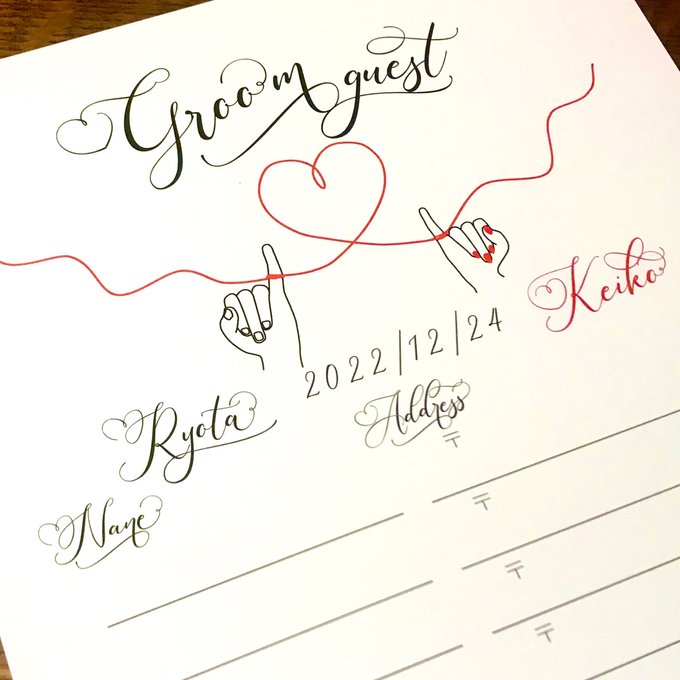 Groom guest
Keiko
2022/12/24
Ryota
Address
Nane
〒
〒
〒
〒